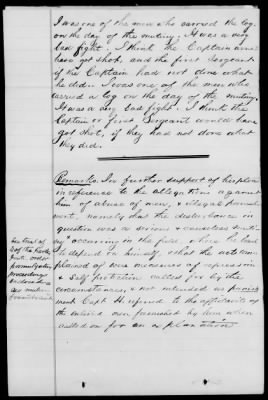 I was one of the men who carried the log
on the day of the mutiny. It was a very
bad fight. I think the Captain would
have got shot, and the first Sergeant
if the Captain had not done what
he did. I was one of the men who
carried a log on the day of the mutiny.
It was a very bad fight. I think the
Captain or first Sergeant would have
got shot, if they had not done what
they did.
Remarks. In further support of his plea
in reference to the allegations against
him of abuse of men, & illegal punish-
ment, namely that the disturbance in
question was a serious & causeless muti-
ny occurring in the field where he had
to depend on himself, & that the acts com-
plained of was measures of repression
& self protection called for by the
circumstances, & not intended as punish-
ment Capt. H. referred to the affidavits of
the enlisted men furnished by him when
called on for an explanation
See trial of
under
proceedings